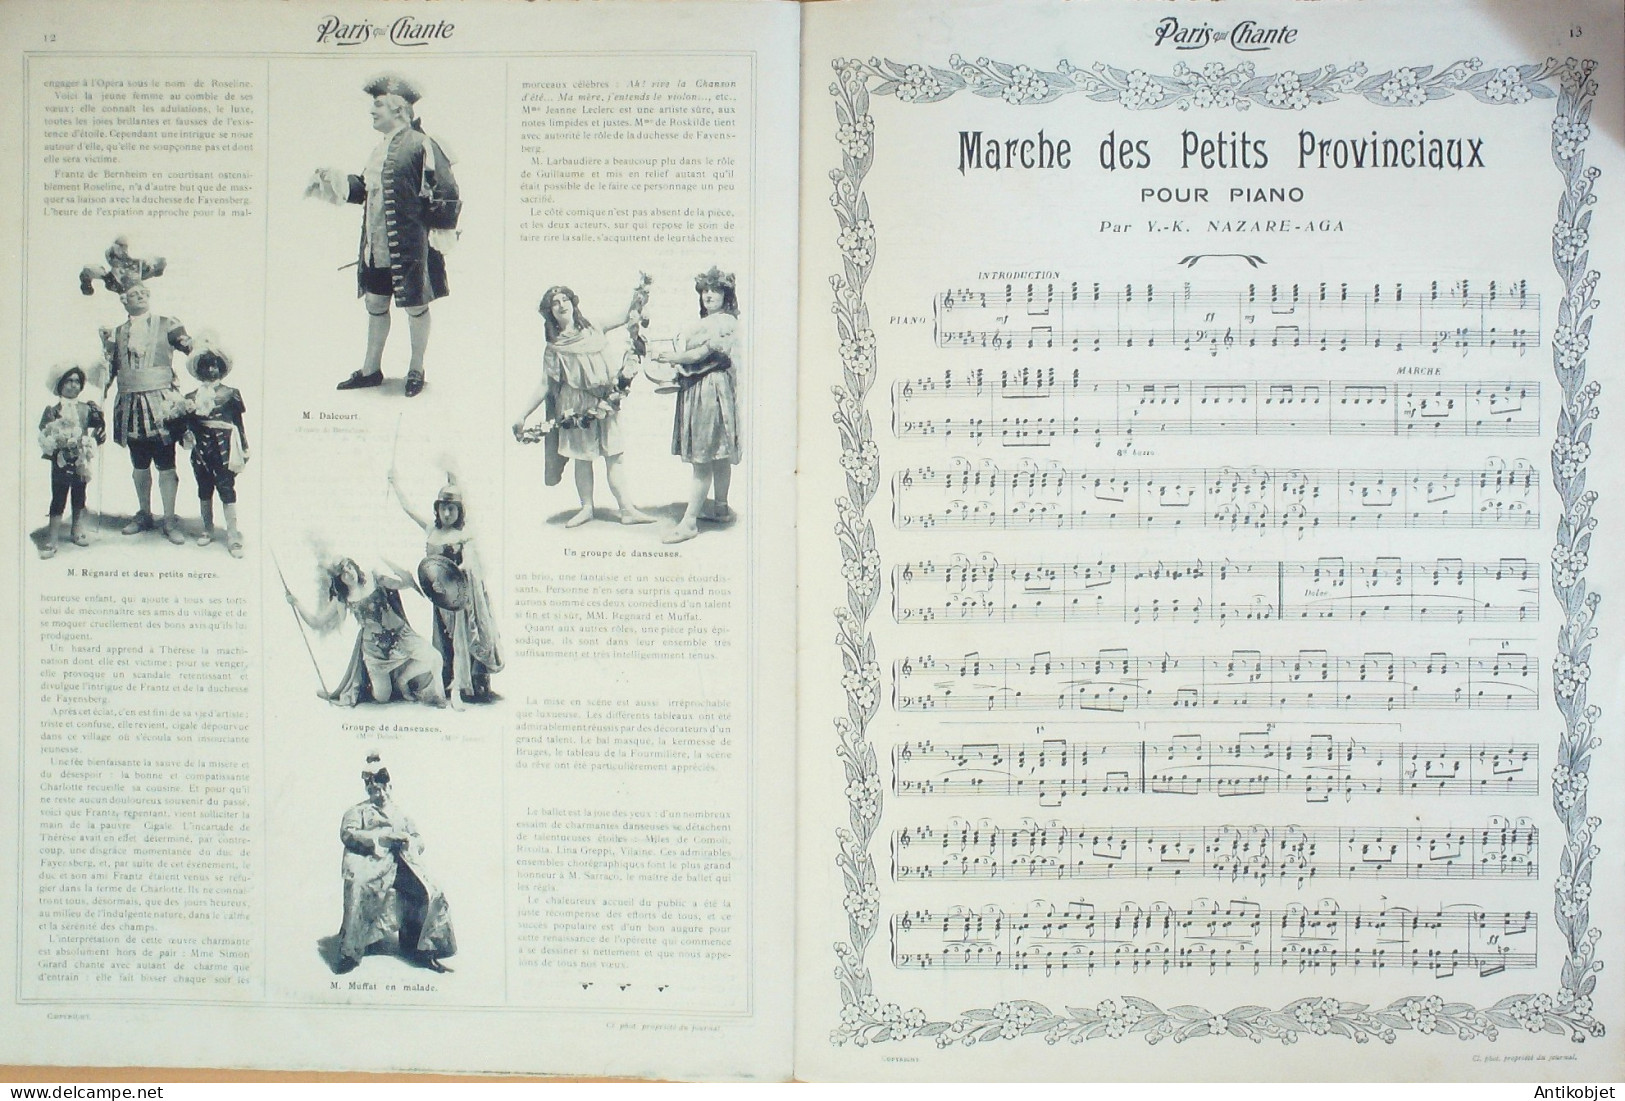 12
Paris qui Chante
engager à l'Opéra sous le nom de Roseline.
Voici la jeune femme au comble de ses
vœux; elle connaît les adulations, le luxe,
toutes les joies brillantes et fausses de l'exis-
tence d'étoile. Cependant une intrigue se noue
autour d'elle, qu'elle ne soupçonne pas et dont
elle sera victime.
Frantz de Bernheim en courtisant ostensi-
blement Roseline, n'a d'autre but que de mas-
quer sa liaison avec la duchesse de Fayensberg.
L'heure de l'expiation approche pour la mal-
M. Régnard et deux petits nègres.
heureuse enfant, qui ajoute à tous ses torts
celui de méconnaître ses amis du village et de
se moquer cruellement des bons avis qu'ils lui
prodiguent.
Un hasard apprend à Thérèse la machi-
nation dont elle est victime; pour se venger,
elle provoque un scandale retentissant et
divulgue l'intrigue de Frantz et de la duchesse
de Fayensberg.
Après cet éclat, c'en est fini de sa vie d'artiste;
triste et confuse, elle revient, cigale dépourvue
dans ce village où s'écoula son insouciante
jeunesse.
Une fée bienfaisante la sauve de la misère et
du désespoir : la bonne et compatissante
Charlotte recueille sa cousine. Et pour qu'il
ne reste aucun douloureux souvenir du passé,
voici que Frantz, repentant, vient solliciter la
main de la pauvre Cigale. L'incartade de
Thérèse avait en effet déterminé, par contre-
coup, une disgrâce momentanée du duc de
Fayensberg, et, par suite de cet événement, le
duc et son ami Frantz étaient venus se réfu-
gier dans la ferme de Charlotte. Ils ne connaî-
tront tous, désormais, que des jours heureux,
au milieu de l'indulgente nature, dans le calme
et la sérénité des champs.
L'interprétation de cette œuvre charmante
est absolument hors de pair : Mme Simon
Girard chante avec autant de charme que
d'entrain : elle fait bisser chaque soir les
M. Dalcourt.
Groupe de danseuses.
M. Muffat en malade.
morceaux célèbres : Ah! vive la Chanson
d'été... Ma mère, j'entends le violon..., etc.,
Mme Jeanne Leclerc est une artiste sûre, aux
notes limpides et justes. Mme de Roskilde tient
avec autorité le rôle de la duchesse de Fayens-
berg.
M. Larbaudière a beaucoup plu dans le rôle
de Guillaume et mis en relief autant qu'il
était possible de le faire ce personnage un peu
sacrifié.
Le côté comique n'est pas absent de la pièce,
et les deux acteurs, sur qui repose le soin de
faire rire la salle, s'acquittent de leur tâche avec
Un groupe de danseuses.
un brio, une fantaisie et un succès étourdis-
sants. Personne n'en sera surpris quand nous
aurons nommé ces deux comédiens d'un talent
si fin et si sûr, MM. Regnard et Muffat.
Quant aux autres rôles, une pièce plus épi-
sodique, ils sont dans leur ensemble très
suffisamment et très intelligemment tenus.
La mise en scène est aussi irréprochable
que luxueuse. Les différents tableaux ont été
admirablement réussis par des décorateurs d'un
grand talent. Le bal masqué, la kermesse de
Bruges, le tableau de la Fourmilière, la scène
du rêve ont été particulièrement appréciés.
Le ballet est la joie des yeux : d'un nombreux
essaim de charmantes danseuses se détachent
de talentueuses étoiles : Mlles de Comoir,
Rivolta, Lina Greppi, Vilaine. Ces admirables
ensembles chorégraphiques font le plus grand
honneur à M. Sarraco, le maître de ballet qui
les régls.
Le chaleureux accueil du public a été la
juste récompense des efforts de tous, et ce
succès populaire est d'un bon augure pour
cette renaissance de l'opérette qui commence
à se dessiner si nettement et que nous appe-
lons de tous nos vœux.
COPYRIGHT.
Cl. phot. propriété du journal
Paris qui Chante
13
Marche des Petits Provinciaux
POUR PIANO
Par Y.-K. NAZARE-AGA
INTRODUCTION
PIANO
mf
ff
mf
MARCHE
mf
8a bassa
Dolce
1a
1a
2a
mf
f
ff
COPYRIGHT.
Cl. phot. propriété du journal.
Antikobjet